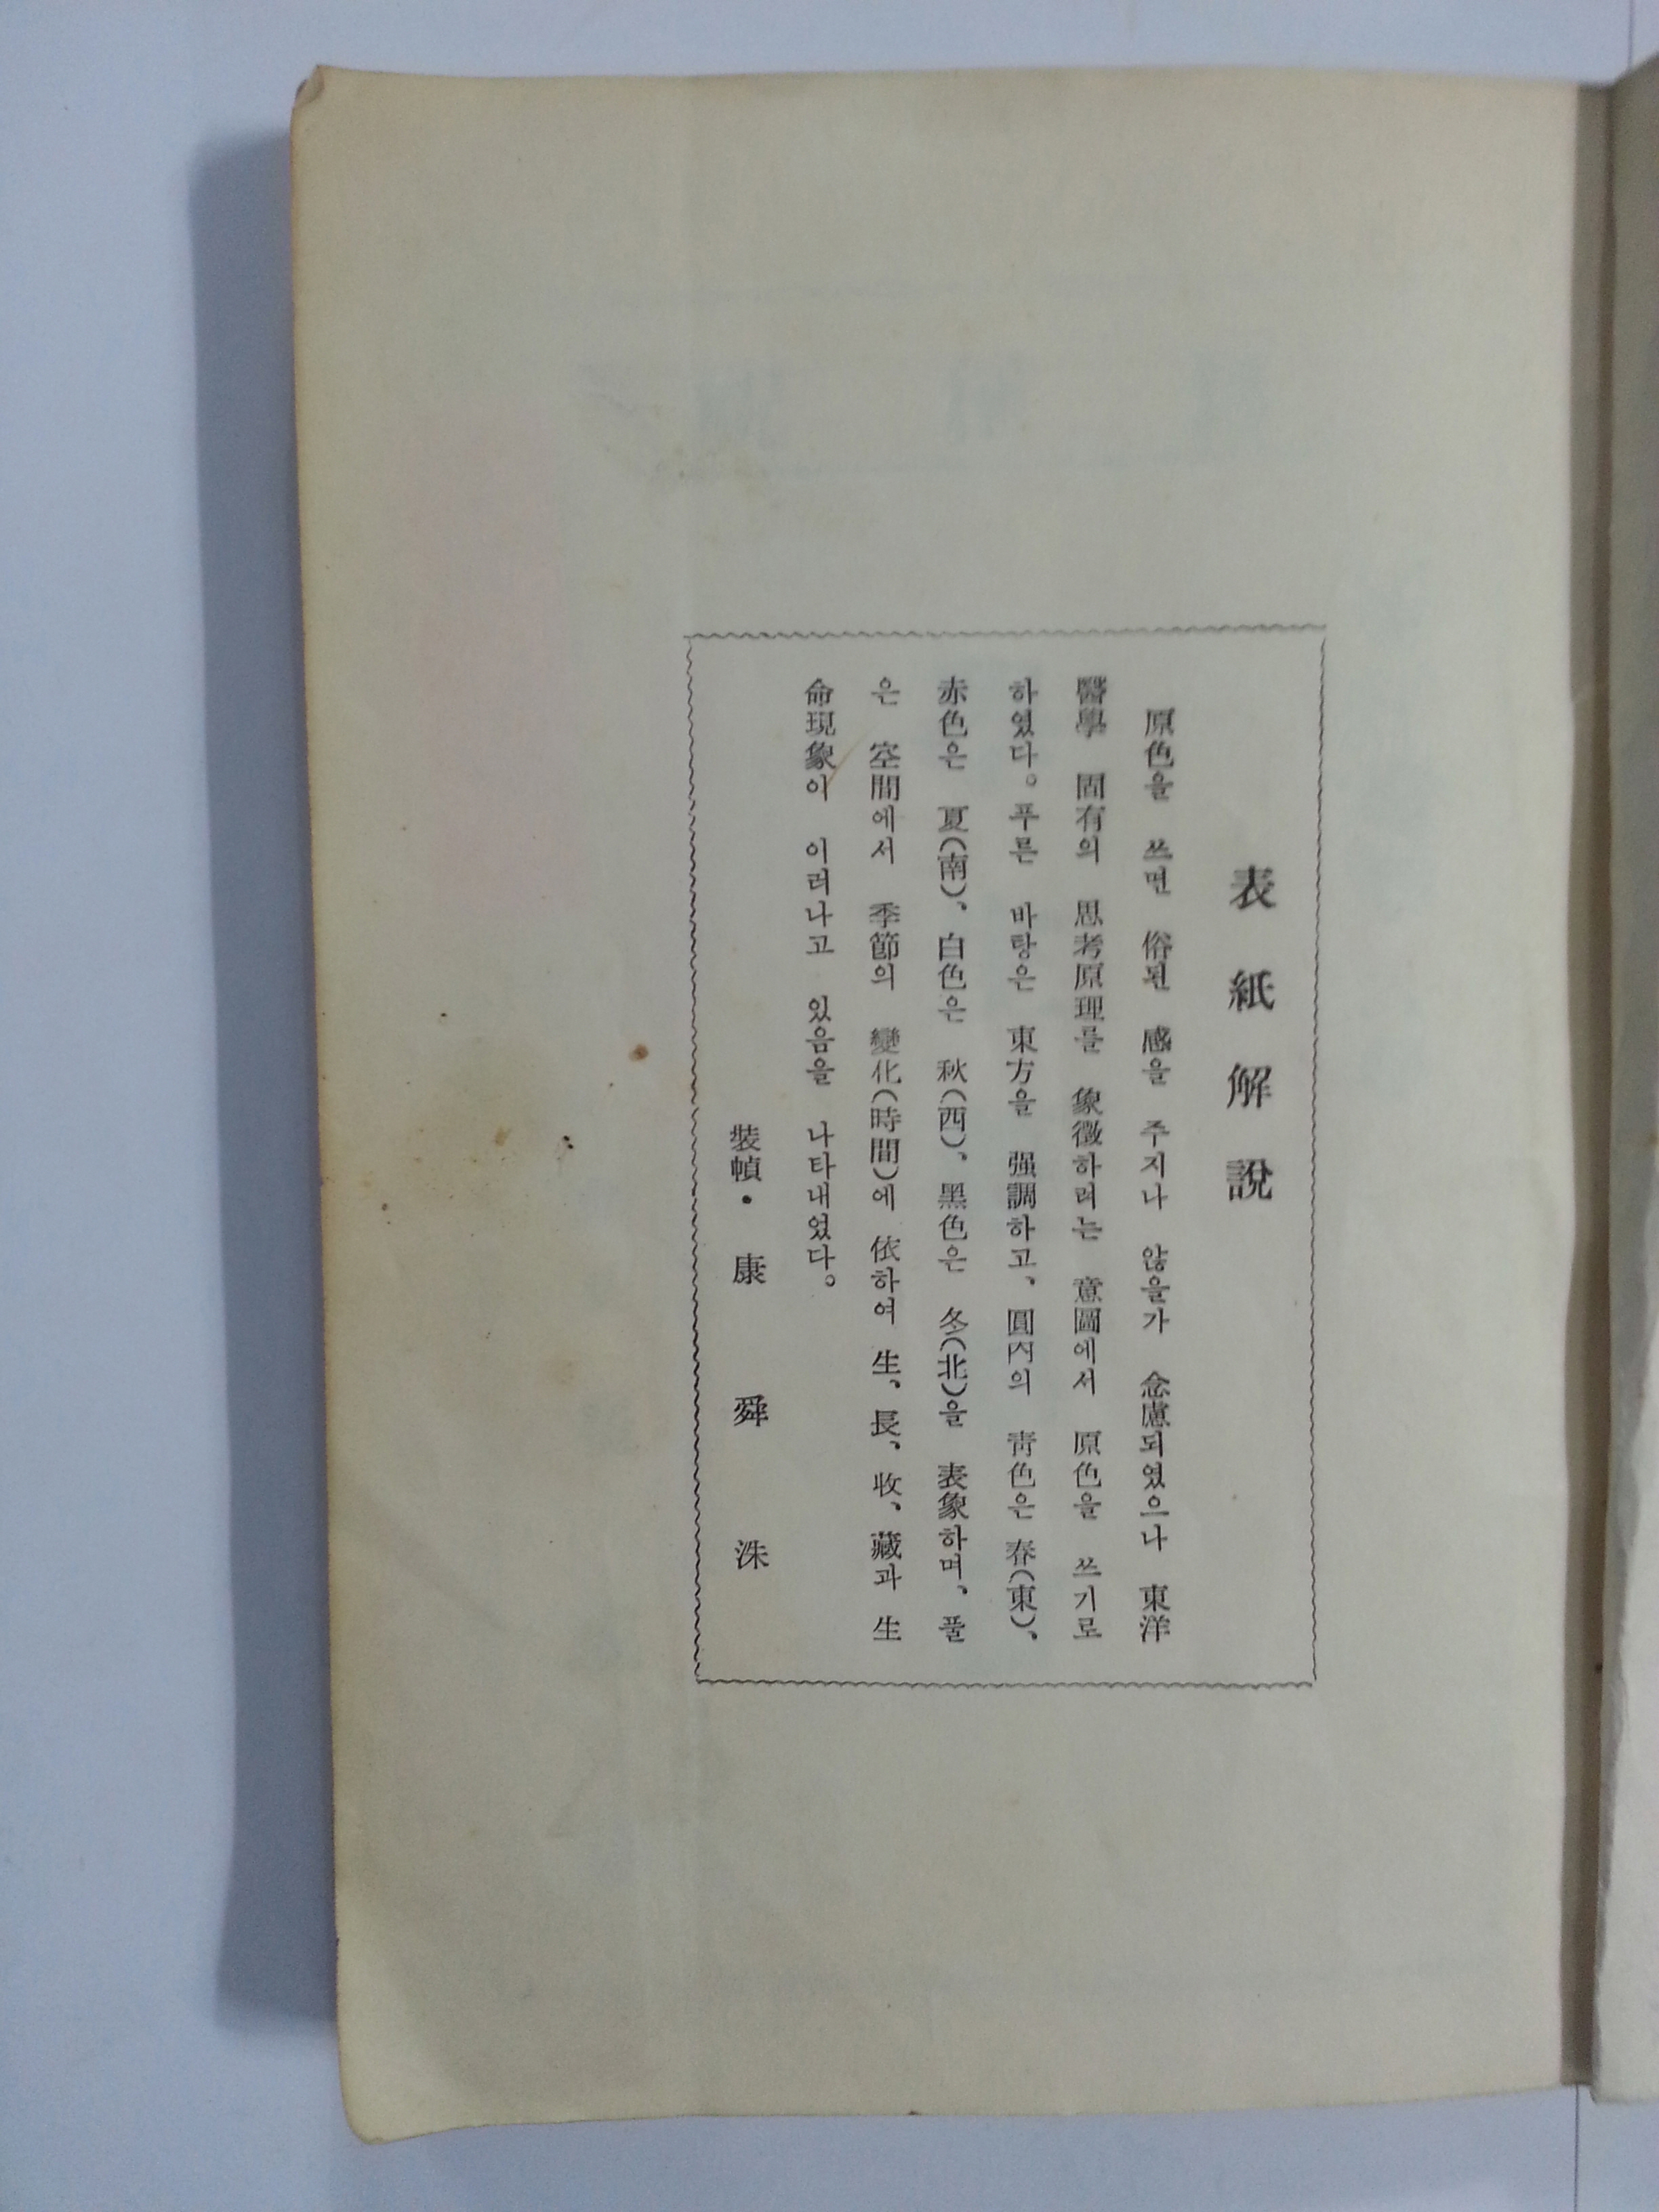 表紙解說
原色을 쓰면 俗된 感을 주지나 않을가 念慮되였으나 東洋
醫學 固有의 思考原理를 象徵하려는 意圖에서 原色을 쓰기로
하였다。푸른 바탕은 東方을 强調하고、圓內의 靑色은 春(東)、
赤色은 夏(南)、白色은 秋(西)、黑色은 冬(北)을 表象하며、풀
은 空間에서 季節의 變化(時間)에 依하여 生、長、收、藏과 生
命現象이 이러나고 있음을 나타내였다。
裝幀・康舜洙